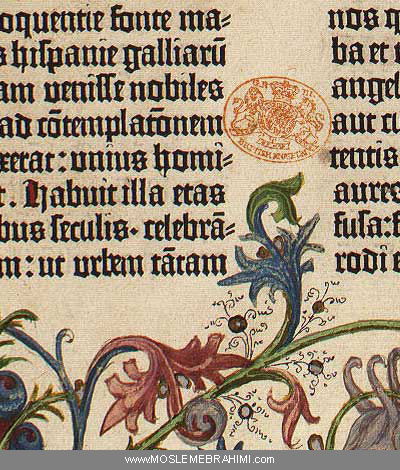 oquentie fonte ma-
s hispanie galliarũ
am venisse nobiles
ad cõtemplatõnem
xerat: unius homi-
t. Habuit illa etas
bus seculis· celebrã-
m: ut urbem tãtam
nos q
ba et t
angel
aut cu
tentis
aures
fusa: f
rodi e
www.MOSLEMEBRAHIMI.com